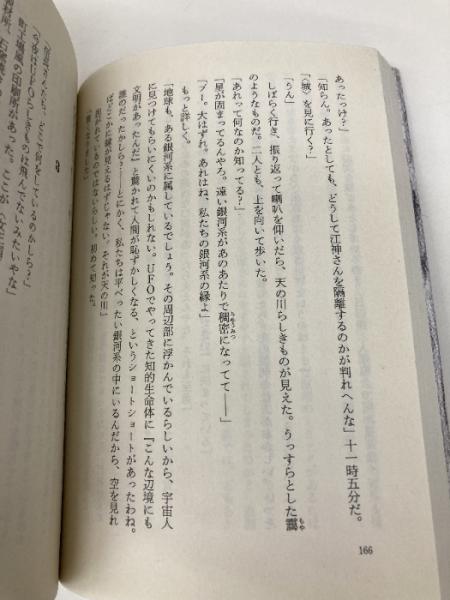 あったっけ?」
「知らん。あったとしても、どうして江神さんを隔離するのかが判れへんな」十一時五分だ。
「〈城〉を見に行く?」
「うん」
しばらく行き、振り返って喇叭を仰いだら、天の川らしきものが見えた。うっすらとした靄
もや
のようなものだ。二人とも、上を向いて歩いた。
「あれって何なのか知ってる?」
「星が固まってるんやろ。遠い銀河系があのあたりで稠密になってて――」
ちゅうみつ
「ブー。大はずれ。あれはね、私たちの銀河系の縁よ」
もっと詳しく。
「地球も、ある銀河系に属しているでしょう。その周辺部に浮かんでいるらしいから、宇宙人
に見つけてもらいにくいのかもしれない。UFOでやってきた知的生命体に『こんな辺境にも
文明があったんだ』と驚かれて人間が恥ずかしくなる、というショートショートがあったわね。
誰のだったかしら?――とにかく、私たちは平べったい銀河系の中にいるんだから、空を見れ
ばどこかに縁が見えるはずじゃない。それが天の川」
初めて知った。
166
「今夜はUFOらしきものは飛んでないみたいやな」
町工場風の印刷所があった。ここが